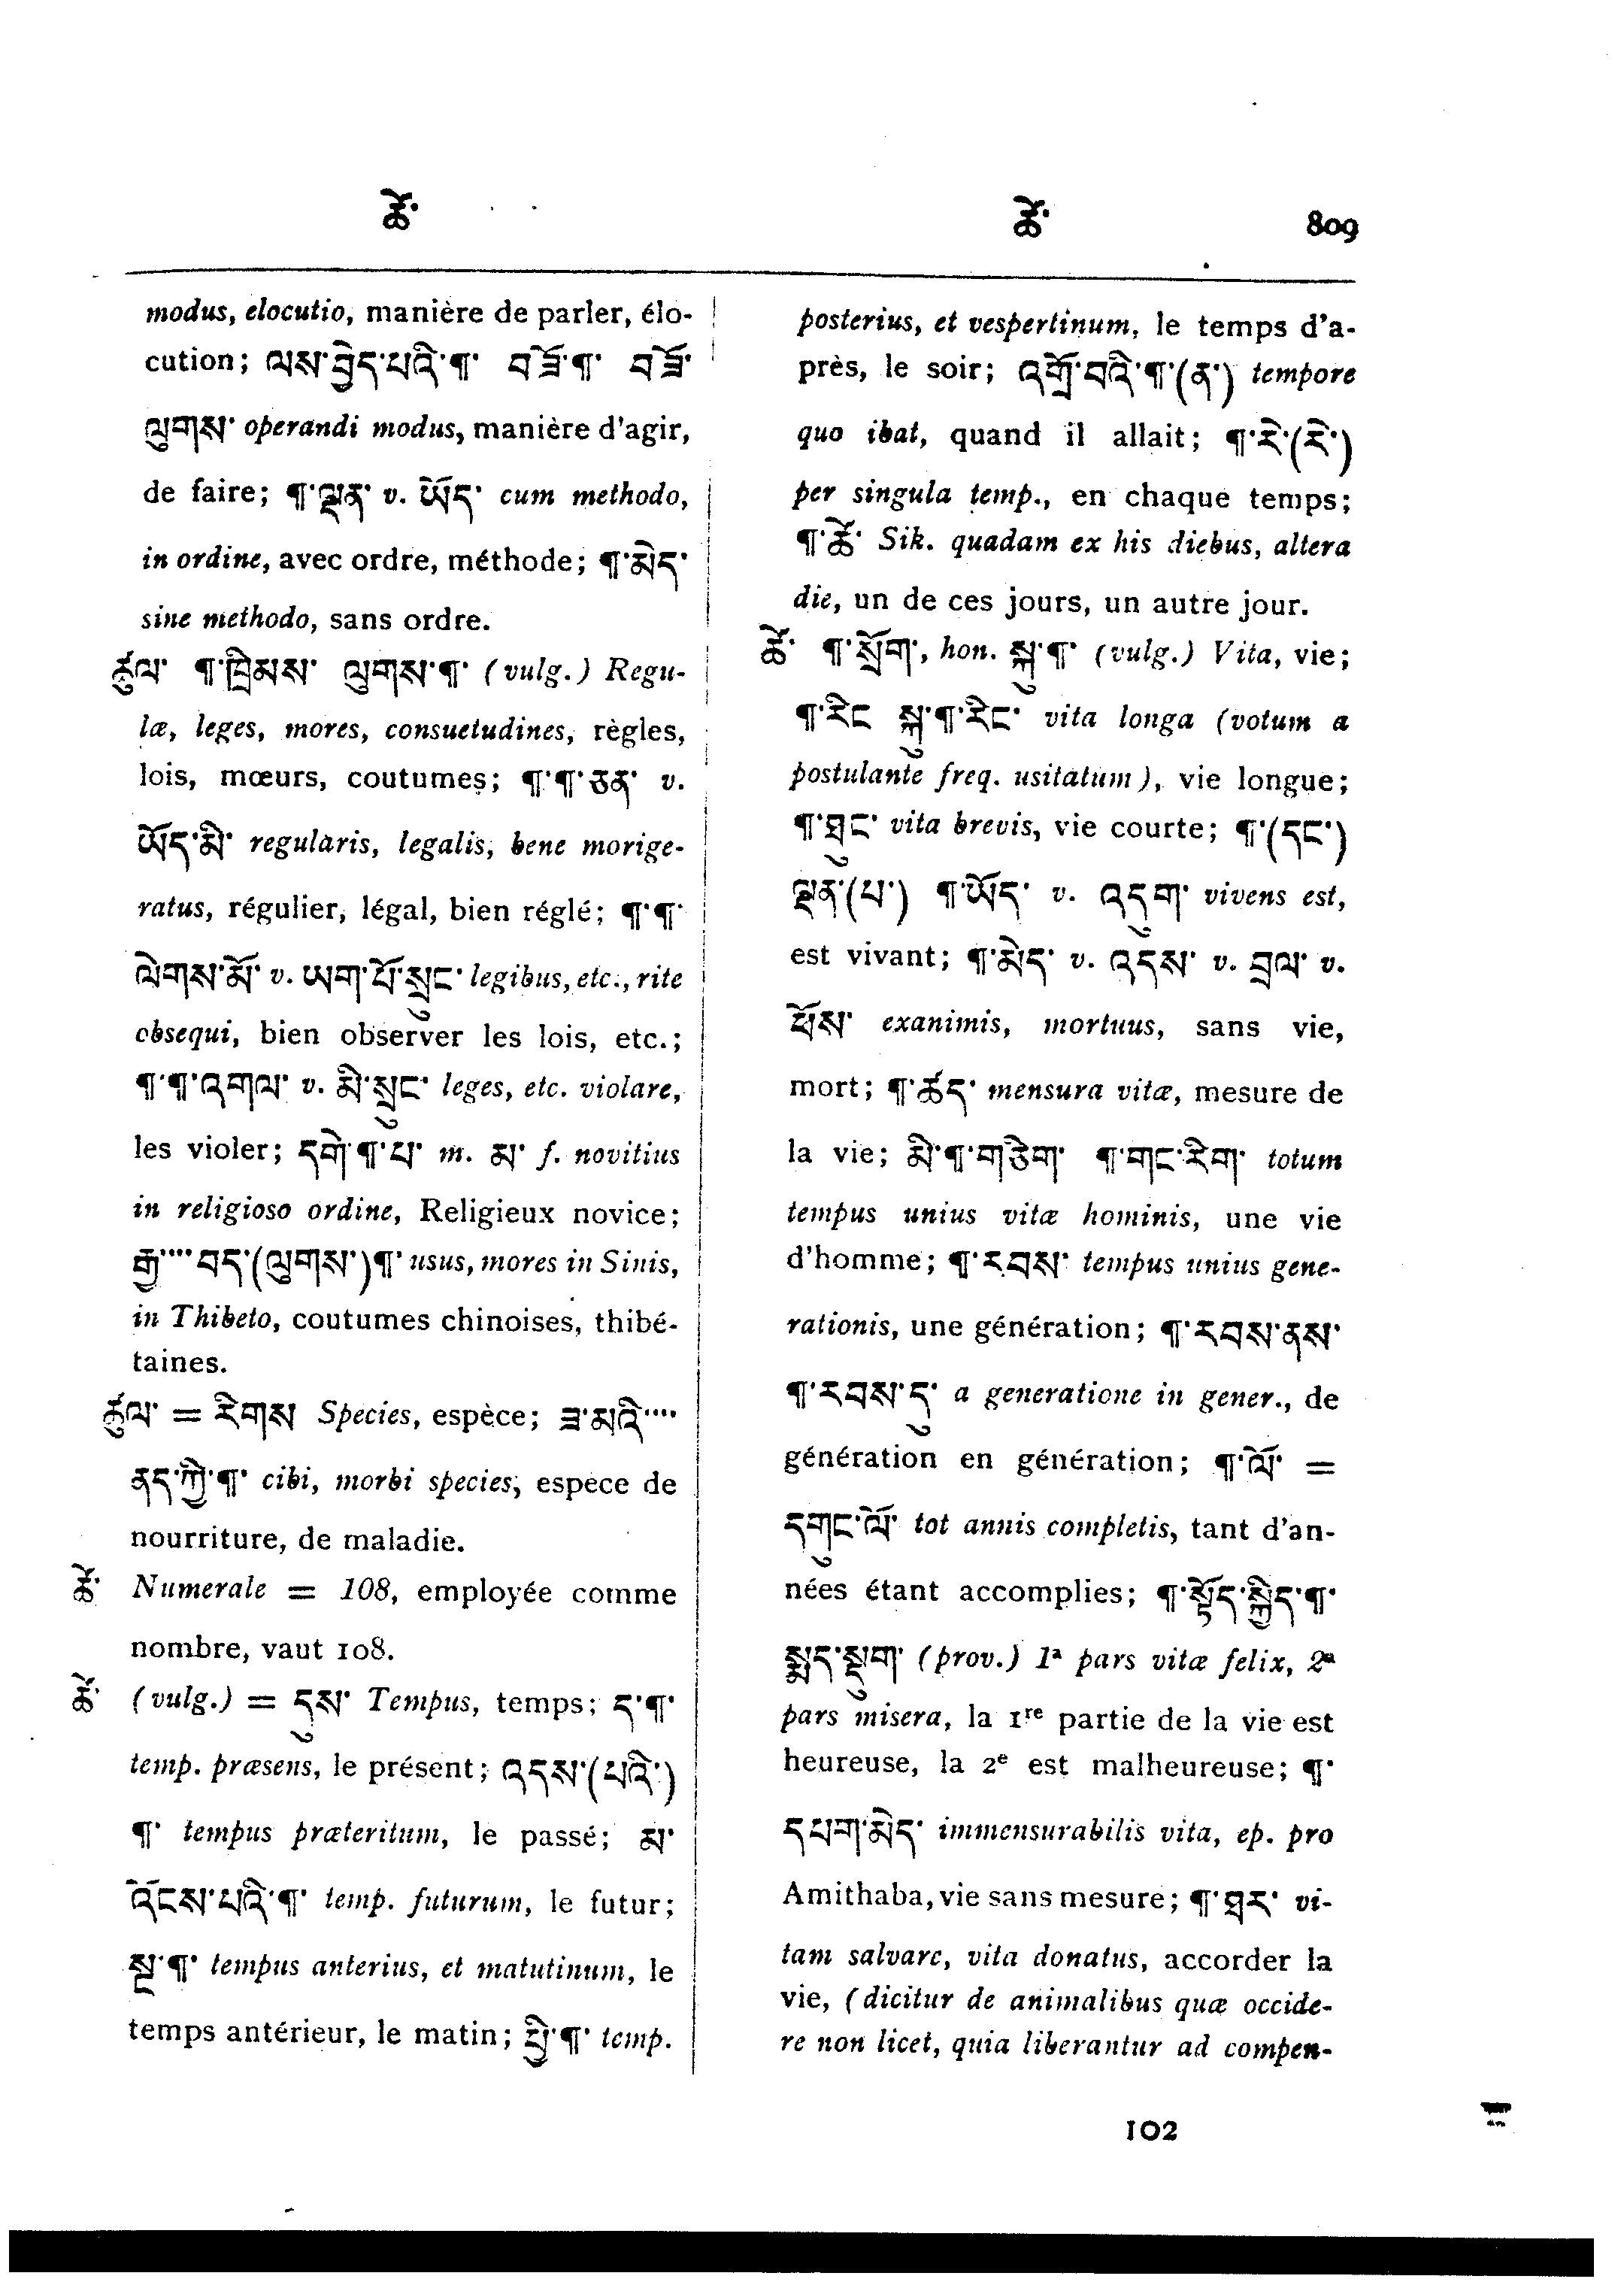 ཚེ་ ཚེ་ 809
modus, elocutio, manière de parler, élo-
cution; ལས་བྱེད་པའི་¶་ བཟོ་¶་ བཟོ་
ལུགས་ operandi modus, manière d'agir,
de faire; ¶་ལྡན་ v. ཡོད་ cum methodo,
in ordine, avec ordre, méthode; ¶་མེད་
sine methodo, sans ordre.
ཚུལ་ ¶་ཁྲིམས་ ལུགས་¶་ (vulg.) Regu-
læ, leges, mores, consuetudines, règles,
lois, mœurs, coutumes; ¶་¶་ཅན་ v.
ཡོད་མི་ regularis, legalis, bene morige-
ratus, régulier, légal, bien réglé; ¶་¶་
ལེགས་མོ་ v. ཡག་པོ་སྲུང་ legibus, etc., rite
obsequi, bien observer les lois, etc.;
¶་¶་འགལ་ v. མི་སྲུང་ leges, etc. violare,
les violer; དགེ་¶་པ་ m. མ་ f. novitius
in religioso ordine, Religieux novice;
རྒྱ་···· བད་(ལུགས་)¶་ usus, mores in Sinis,
in Thibeto, coutumes chinoises, thibé-
taines.
ཚུལ་ = རིགས Species, espèce; ཟ་མའི་····
ནད་ཀྱི་¶་ cibi, morbi species, espece de
nourriture, de maladie.
ཚེ་ Numerale = 108, employée comme
nombre, vaut 108.
ཚེ་ (vulg.) = དུས་ Tempus, temps; ད་¶་
temp. præsens, le présent; འདས་(པའི་)
¶་ tempus præteritum, le passé; མ་
འོངས་པའི་¶་ temp. futurum, le futur;
སྔ་¶་ tempus anterius, et matutinum, le
temps antérieur, le matin; ཕྱི་¶་ temp.
posterius, et vespertinum, le temps d'a-
près, le soir; འགྲོ་བའི་¶་(ན་) tempore
quo ibat, quand il allait; ¶་རེ་(རེ་)
per singula temp., en chaque temps;
¶་ཚོ་ Sik. quadam ex his diebus, altera
die, un de ces jours, un autre jour.
ཚེ་ ¶་སྲོག་, hon. སྐུ་¶་ (vulg.) Vita, vie;
¶་རིང སྐུ་¶་རིང་ vita longa (votum a
postulante freq. usitatum), vie longue;
¶་ཐུང་ vita brevis, vie courte; ¶་(དང་)
ལྡན་(པ་) ¶་ཡོད་ v. འདུག་ vivens est,
est vivant; ¶་མེད་ v. འདས་ v. བྲལ་ v.
ཕོས་ exanimis, mortuus, sans vie,
mort; ¶་ཚད་ mensura vitæ, mesure de
la vie; མི་¶་གཅིག་ ¶་གང་རིག་ totum
tempus unius vitæ hominis, une vie
d'homme; ¶་རབས་ tempus unius gene-
rationis, une génération; ¶་རབས་ནས་
¶་རབས་དུ་ a generatione in gener., de
génération en génération; ¶་ལོ་ =
དགུང་ལོ་ tot annis completis, tant d'an-
nées étant accomplies; ¶་སྟོད་སྐྱིད་¶་
སྨད་སྡུག་ (prov.) 1ª pars vitæ felix, 2ª
pars misera, la 1ʳᵉ partie de la vie est
heureuse, la 2ᵉ est malheureuse; ¶་
དཔག་མེད་ immensurabilis vita, ep. pro
Amithaba, vie sans mesure; ¶་ཐར་ vi-
tam salvare, vita donatus, accorder la
vie, (dicitur de animalibus quæ occide-
re non licet, quia liberantur ad compen-
102